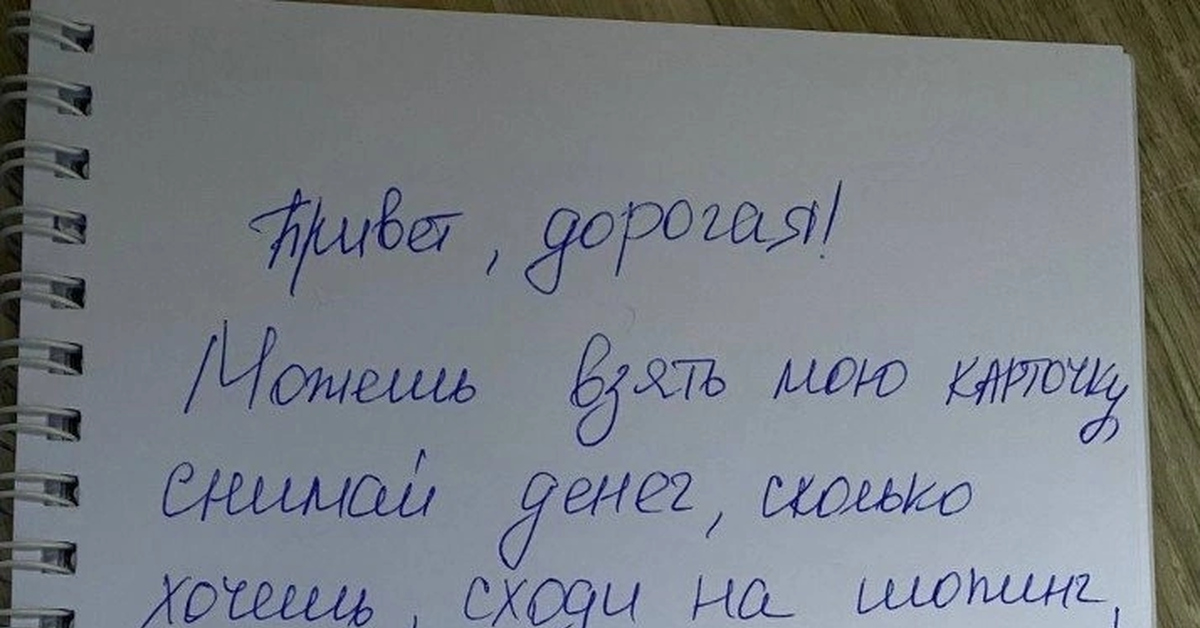 Привет, дорогая!
Можешь взять мою карточку,
снимай денег, сколько
хочешь, сходи на шопинг,